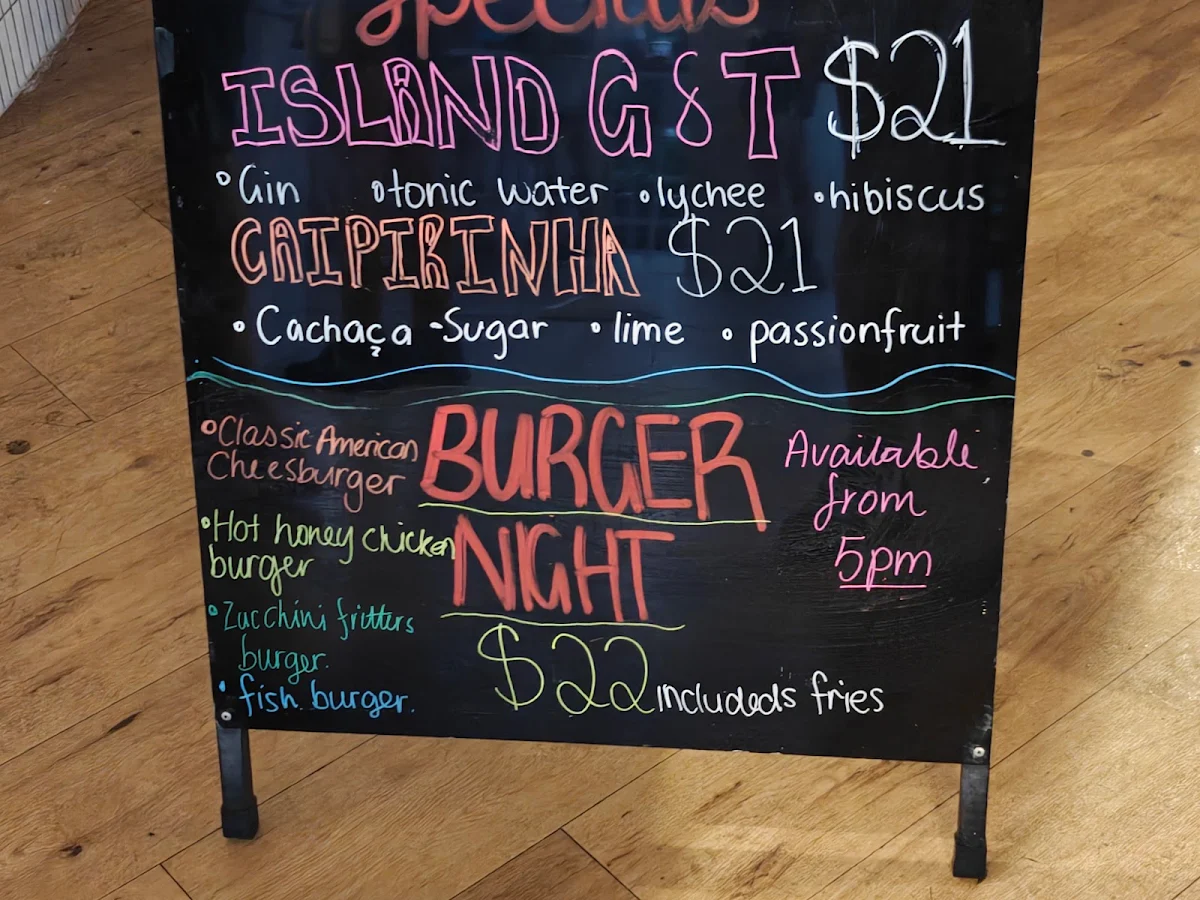 Specials
ISLAND G & T $21
°Gin °tonic water •lychee •hibiscus
CAIPIRINHA $21
• Cachaça -Sugar • lime • passionfruit
°Classic American
Cheesburger
•Hot honey chicken
burger
•Zucchini fritters
burger.
• fish burger.
BURGER
NIGHT
$22 includeds fries
Available
from
5pm